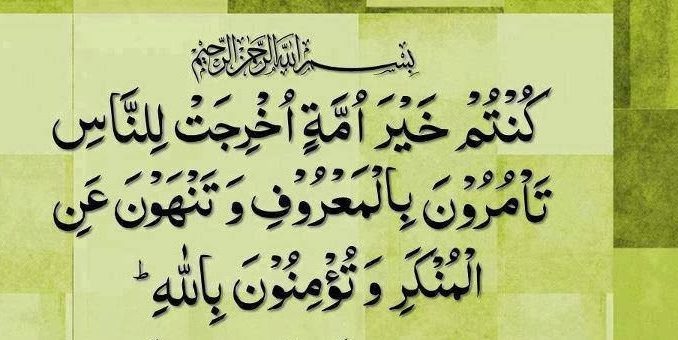 بِسْمِ اللهِ الرَّحْمٰنِ الرَّحِيْمِ
كُنْتُمْ خَيْرَ اُمَّةٍ اُخْرِجَتْ لِلنَّاسِ
تَاْمُرُوْنَ بِالْمَعْرُوْفِ وَ تَنْهَوْنَ عَنِ
الْمُنْكَرِ وَ تُؤْمِنُوْنَ بِاللّٰهِ ؕ